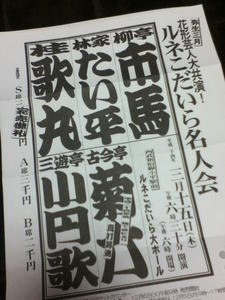 弥生三月
花形芸人大共演!
ルネこだいら名人会
柳亭
市馬
林家
たい平
桂
歌丸
三月十五日(木)
ルネこだいら大ホール
古今亭
菊六
三遊亭
小円歌
S席 完売御礼 円
A席 二千円
B席 二千円